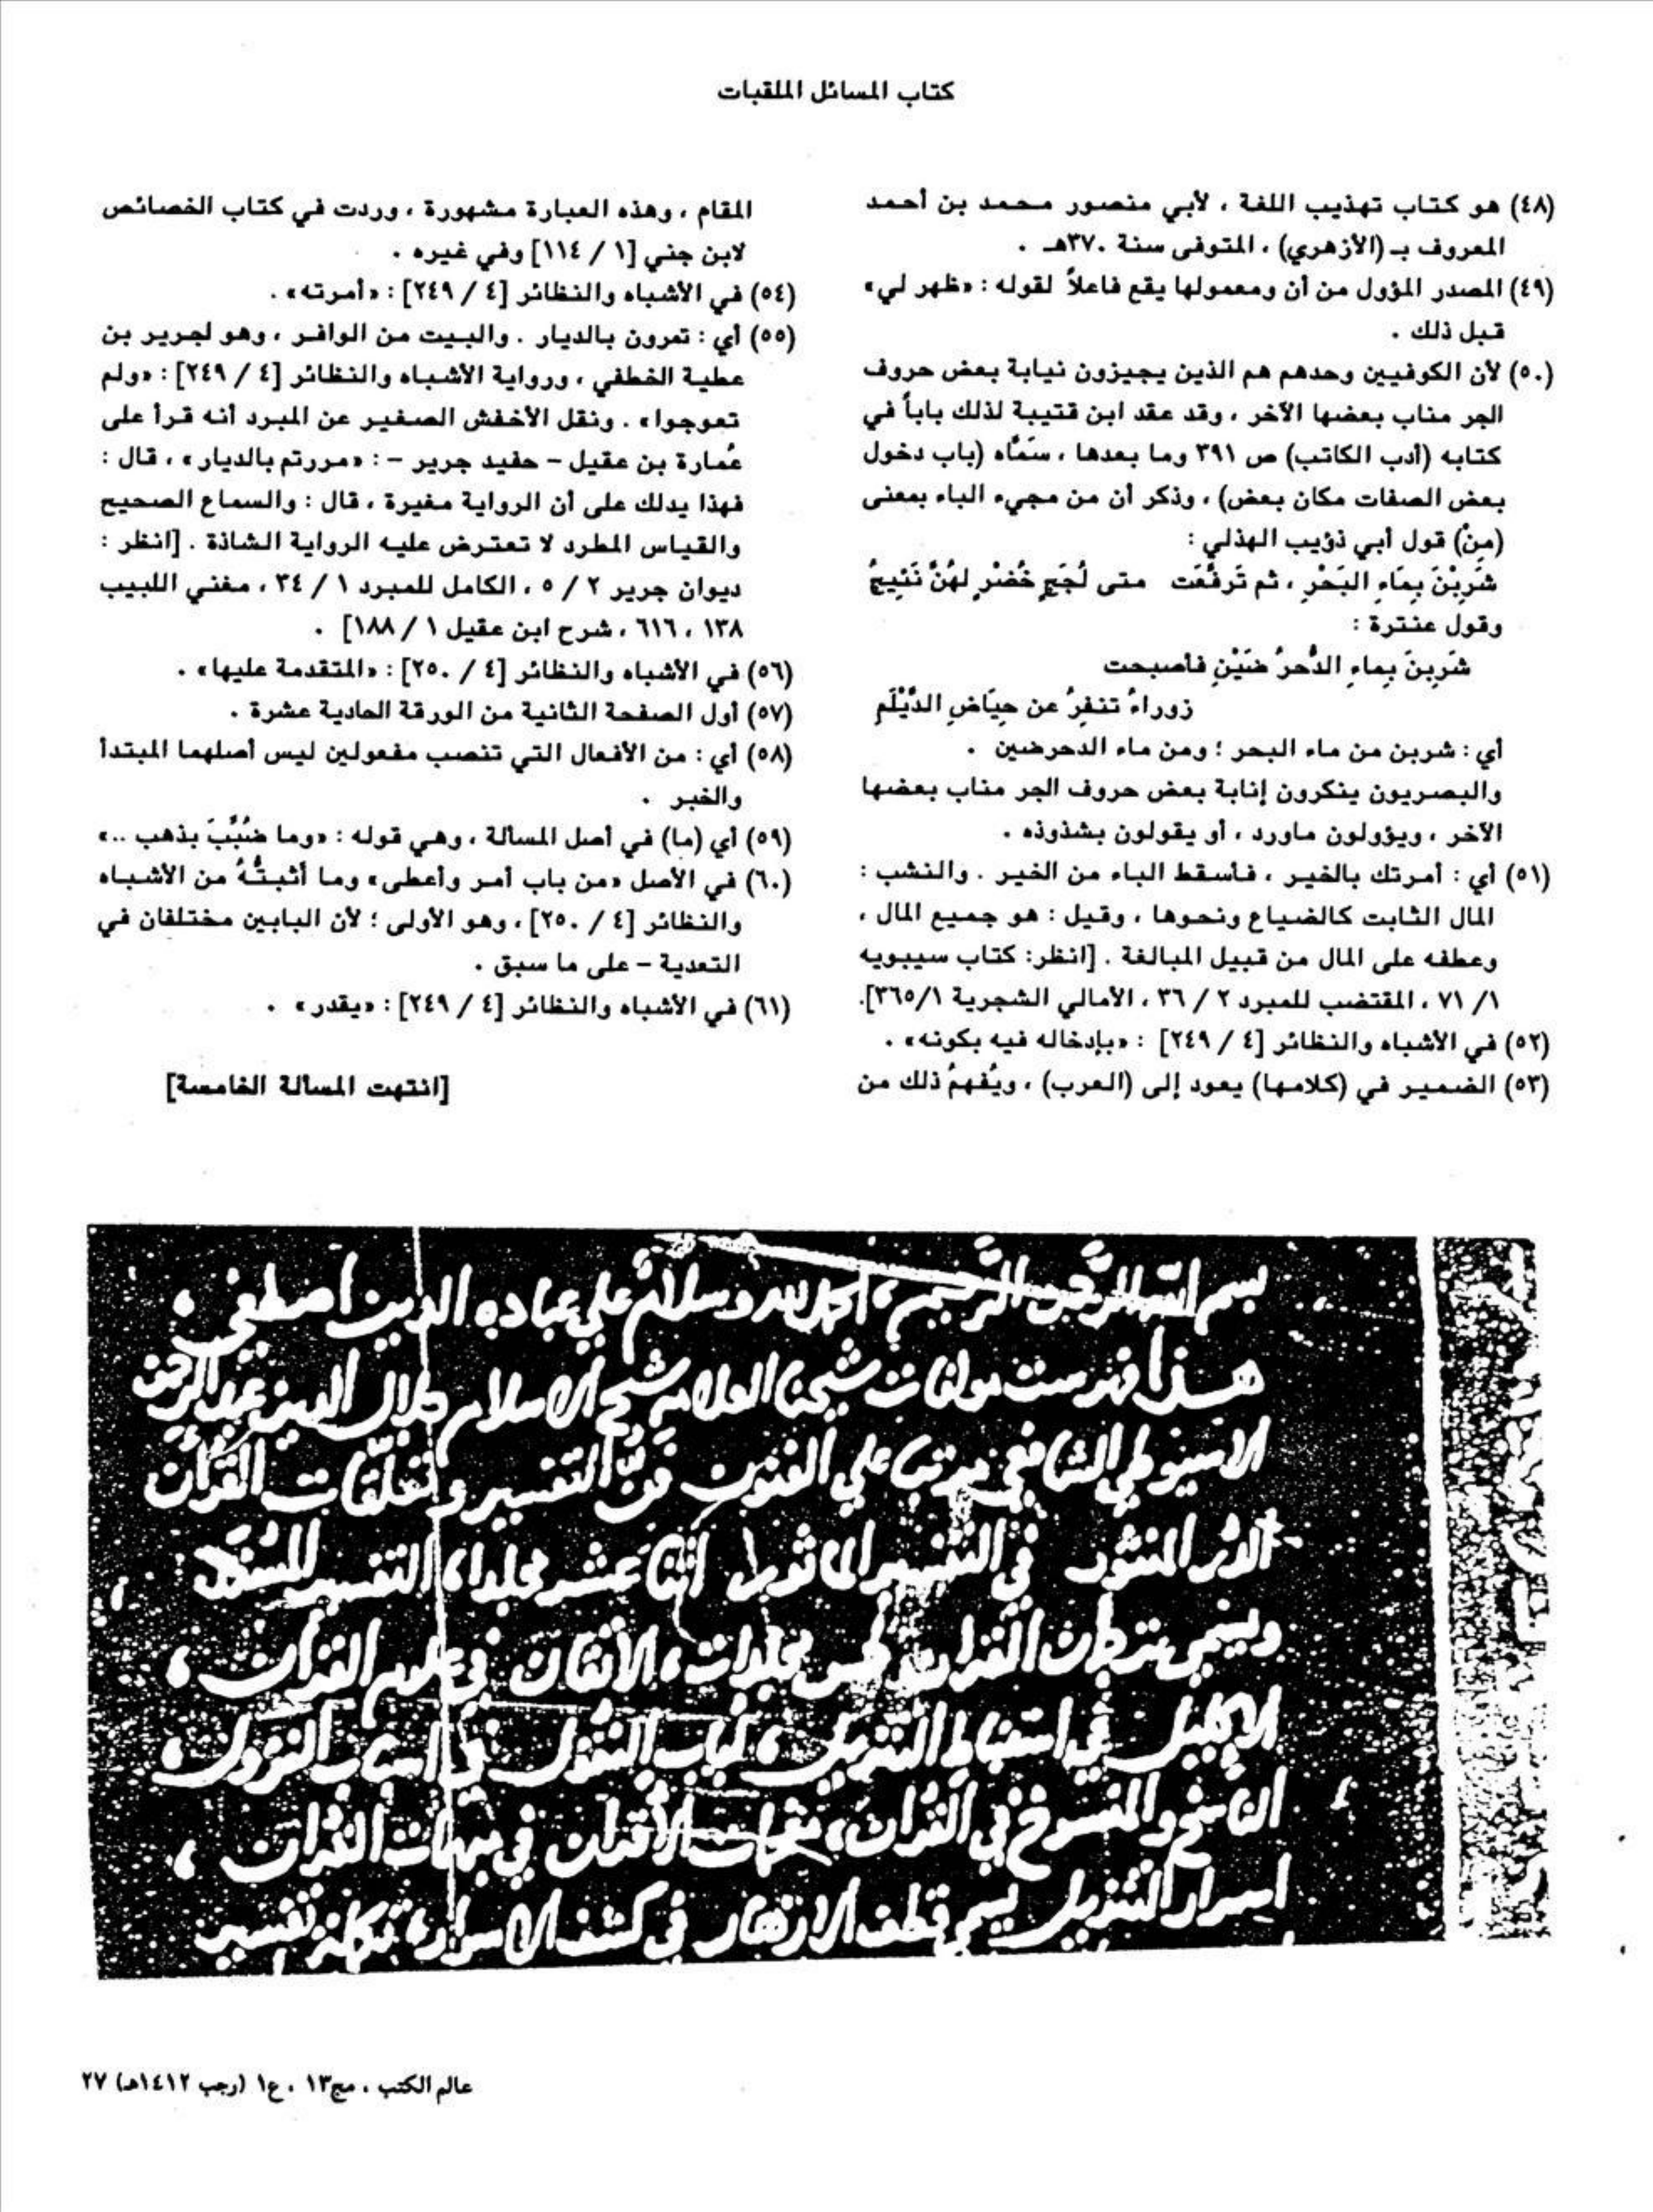 كتاب المسائل الملقبات
(٤٨) هو كتاب تهذيب اللغة ، لأبي منصور محمد بن أحمد
المعروف بـ (الأزهري) ، المتوفى سنة ٣٧٠هـ .
(٤٩) المصدر المؤول من أن ومعمولها يقع فاعلاً لقوله : «ظهر لي»
قبل ذلك .
(٥٠) لأن الكوفيين وحدهم هم الذين يجيزون نيابة بعض حروف
الجر مناب بعضها الآخر ، وقد عقد ابن قتيبة لذلك باباً في
كتابه (أدب الكاتب) ص ٣٩١ وما بعدها ، سَمَّاه (باب دخول
بعض الصفات مكان بعض) ، وذكر أن من مجيء الباء بمعنى
(مِنْ) قول أبي ذؤيب الهذلي :
شَرِبْنَ بِمَاءِ البَحْرِ ، ثم تَرفَّعَت متى لُجَجٍ خُضْرٍ لهُنَّ نَئِيجُ
وقول عنترة :
شَرِبنَ بِماءِ الدُّحرُ ضَيْنِ فأصبحت
زوراءَ تنفِرُ عن حِيَاضِ الدَّيْلَمِ
أي : شربن من ماء البحر ؛ ومن ماء الدحرضين .
والبصريون ينكرون إنابة بعض حروف الجر مناب بعضها
الآخر ، ويؤولون ماورد ، أو يقولون بشذوذه .
(٥١) أي : أمرتك بالخير ، فأسقط الباء من الخير . والنشب :
المال الثابت كالضياع ونحوها ، وقيل : هو جميع المال ،
وعطفه على المال من قبيل المبالغة . [انظر: كتاب سيبويه
١/ ٧١ ، المقتضب للمبرد ٢ / ٣٦ ، الأمالي الشجرية ٣٦٥/١].
(٥٢) في الأشباه والنظائر [٤ / ٢٤٩] : «بإدخاله فيه بكونه» .
(٥٣) الضمير في (كلامها) يعود إلى (العرب) ، ويُفهمُ ذلك من
المقام ، وهذه العبارة مشهورة ، وردت في كتاب الخصائص
لابن جني [١ / ١١٤] وفي غيره .
(٥٤) في الأشباه والنظائر [٤ / ٢٤٩] : «أمرته» .
(٥٥) أي : تمرون بالديار . والبيت من الوافر ، وهو لجرير بن
عطية الخطفي ، ورواية الأشباه والنظائر [٤ / ٢٤٩] : «ولم
تعوجوا» . ونقل الأخفش الصغير عن المبرد أنه قرأ على
عُمارة بن عقيل – حفيد جرير – : «مررتم بالديار» ، قال :
فهذا يدلك على أن الرواية مغيرة ، قال : والسماع الصحيح
والقياس المطرد لا تعترض عليه الرواية الشاذة . [انظر :
ديوان جرير ٢ / ٥ ، الكامل للمبرد ١ / ٣٤ ، مغني اللبيب
١٣٨ ، ٦١٦ ، شرح ابن عقيل ١ / ١٨٨] .
(٥٦) في الأشباه والنظائر [٤ / ٢٥٠] : «المتقدمة عليها» .
(٥٧) أول الصفحة الثانية من الورقة الحادية عشرة .
(٥٨) أي : من الأفعال التي تنصب مفعولين ليس أصلهما المبتدأ
والخبر .
(٥٩) أي (ما) في أصل المسألة ، وهي قوله : «وما ضُبِّبَ بذهب ..»
(٦٠) في الأصل «من باب أمر وأعطى» وما أثبتُّهُ من الأشباه
والنظائر [٤ / ٢٥٠] ، وهو الأولى ؛ لأن البابين مختلفان في
التعدية – على ما سبق .
(٦١) في الأشباه والنظائر [٤ / ٢٤٩] : «يقدر» .
[انتهت المسألة الخامسة]
بسم الله الرحمن الرحيم ، الحمد لله وسلام على عباده الذين اصطفى ،
هذا فهرست مولفات شيخنا العلامه شيخ الاسلام جلال الدين عبد الرحمن
الاسيوطي الشافعي مرتبا علي الفنون فن التفسير وتعلقات القرآن
الدر المنثور في التفسير الماثور اثنا عشر مجلدا ، التفسير المسند
ويسمى ترجمان القرآن خمس مجلدات ، الاتقان في علوم القرآن ،
الاكليل في استنباط التنزيل ، لباب النقول في اسباب النزول ،
الناسخ والمنسوخ في القرآن ، مفحمات الأقران في مبهمات القرآن ،
اسرار التنزيل يسمى قطف الازهار في كشف الاسرار ، تكملة تفسير
عالم الكتب ، مج١٣ ، ع١ (رجب ١٤١٢هـ) ٢٧